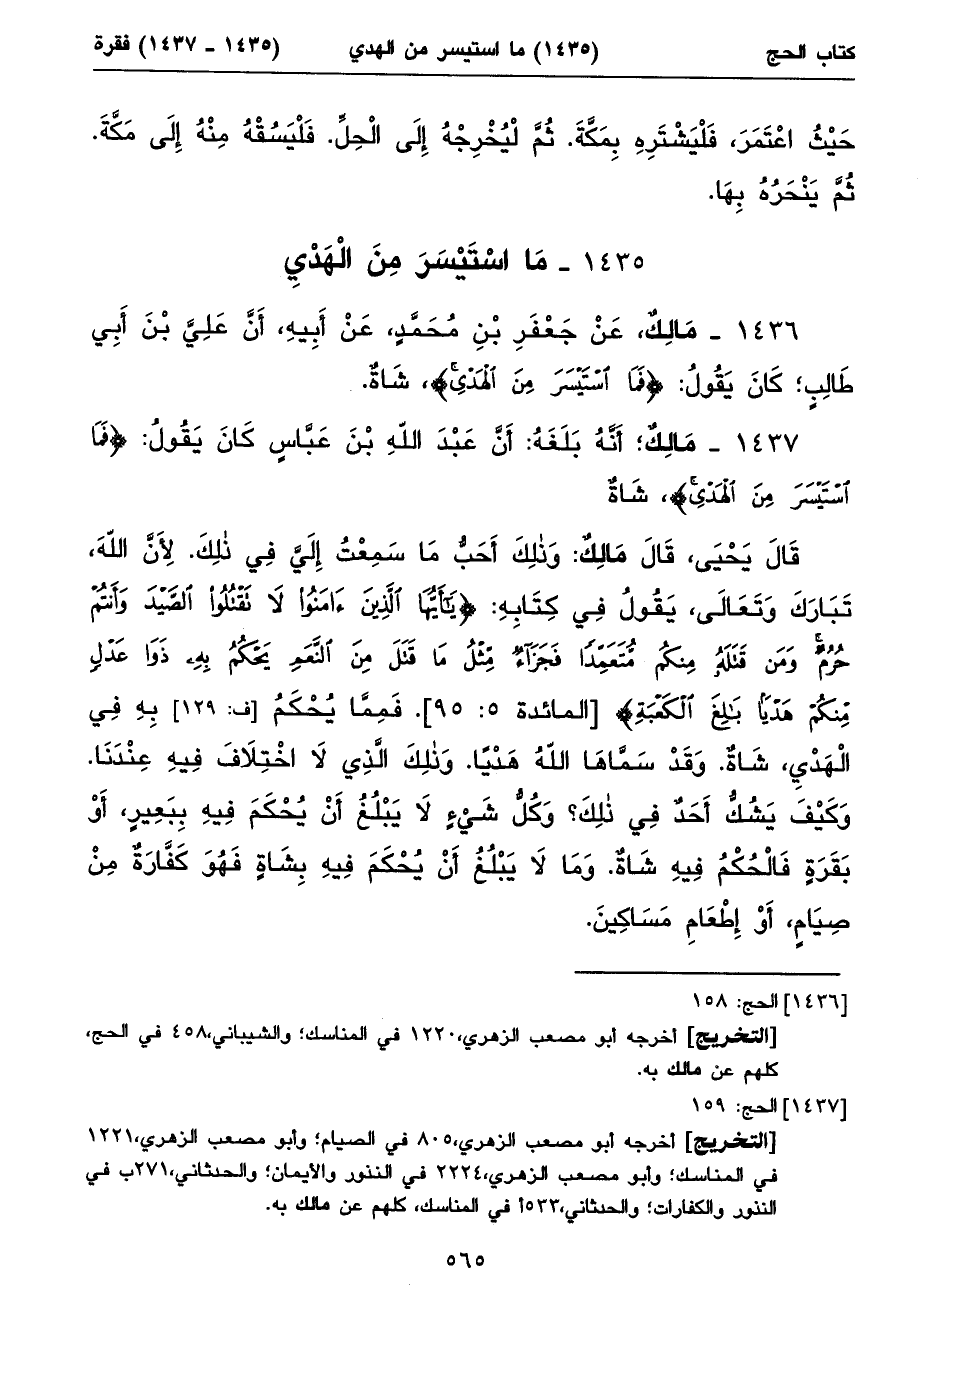 كتاب الحج (١٤٣٥) ما استيسر من الهدي (١٤٣٥ - ١٤٣٧) فقرة
حَيْثُ اعْتَمَرَ، فَلْيَشْتَرِهِ بِمَكَّةَ. ثُمَّ لْيُخْرِجْهُ إِلَى الْحِلِّ. فَلْيَسُقْهُ مِنْهُ إِلَى مَكَّةَ.
ثُمَّ يَنْحَرُهُ بِهَا.
١٤٣٥ - مَا اسْتَيْسَرَ مِنَ الْهَدْيِ
١٤٣٦ - مَالِكٌ، عَنْ جَعْفَرِ بْنِ مُحَمَّدٍ، عَنْ أَبِيهِ، أَنَّ عَلِيَّ بْنَ أَبِي
طَالِبٍ؛ كَانَ يَقُولُ: ﴿فَمَا ٱسْتَيْسَرَ مِنَ ٱلْهَدْيِۚ﴾، شَاةٌ.
١٤٣٧ - مَالِكٌ؛ أَنَّهُ بَلَغَهُ: أَنَّ عَبْدَ اللّهِ بْنَ عَبَّاسٍ كَانَ يَقُولُ: ﴿فَمَا
ٱسْتَيْسَرَ مِنَ ٱلْهَدْيِۚ﴾، شَاةٌ
قَالَ يَحْيَى، قَالَ مَالِكٌ: وَذٰلِكَ أَحَبُّ مَا سَمِعْتُ إِلَيَّ فِي ذٰلِكَ. لِأَنَّ اللّهَ،
تَبَارَكَ وَتَعَالَى، يَقُولُ فِي كِتَابِهِ: ﴿يَٰٓأَيُّهَا ٱلَّذِينَ ءَامَنُوا۟ لَا تَقْتُلُوا۟ ٱلصَّيْدَ وَأَنتُمْ
حُرُمٌۚ وَمَن قَتَلَهُۥ مِنكُم مُّتَعَمِّدًا فَجَزَآءٌ مِّثْلُ مَا قَتَلَ مِنَ ٱلنَّعَمِ يَحْكُمُ بِهِۦ ذَوَا عَدْلٍ
مِّنكُمْ هَدْيًۢا بَٰلِغَ ٱلْكَعْبَةِ﴾ [المائدة ٥: ٩٥]. فَمِمَّا يُحْكَمُ [ف: ١٢٩] بِهِ فِي
الْهَدْيِ، شَاةٌ. وَقَدْ سَمَّاهَا اللّهُ هَدْيًا. وَذٰلِكَ الَّذِي لَا اخْتِلَافَ فِيهِ عِنْدَنَا.
وَكَيْفَ يَشُكُّ أَحَدٌ فِي ذٰلِكَ؟ وَكُلُّ شَيْءٍ لَا يَبْلُغُ أَنْ يُحْكَمَ فِيهِ بِبَعِيرٍ، أَوْ
بَقَرَةٍ فَالْحُكْمُ فِيهِ شَاةٌ. وَمَا لَا يَبْلُغُ أَنْ يُحْكَمَ فِيهِ بِشَاةٍ فَهُوَ كَفَّارَةٌ مِنْ
صِيَامٍ، أَوْ إِطْعَامِ مَسَاكِينَ.
[١٤٣٦] الحج: ١٥٨
[التخريج] أخرجه أبو مصعب الزهري، ١٢٢٠ في المناسك؛ والشيباني، ٤٥٨ في الحج،
كلهم عن مالك به.
[١٤٣٧] الحج: ١٥٩
[التخريج] أخرجه أبو مصعب الزهري، ٨٠٥ في الصيام؛ وأبو مصعب الزهري، ١٢٢١
في المناسك؛ وأبو مصعب الزهري، ٢٢٢٤ في النذور والأيمان؛ والحدثاني، ٢٧١ب في
النذور والكفارات؛ والحدثاني، ٥٣٣أ في المناسك، كلهم عن مالك به.
٥٦٥